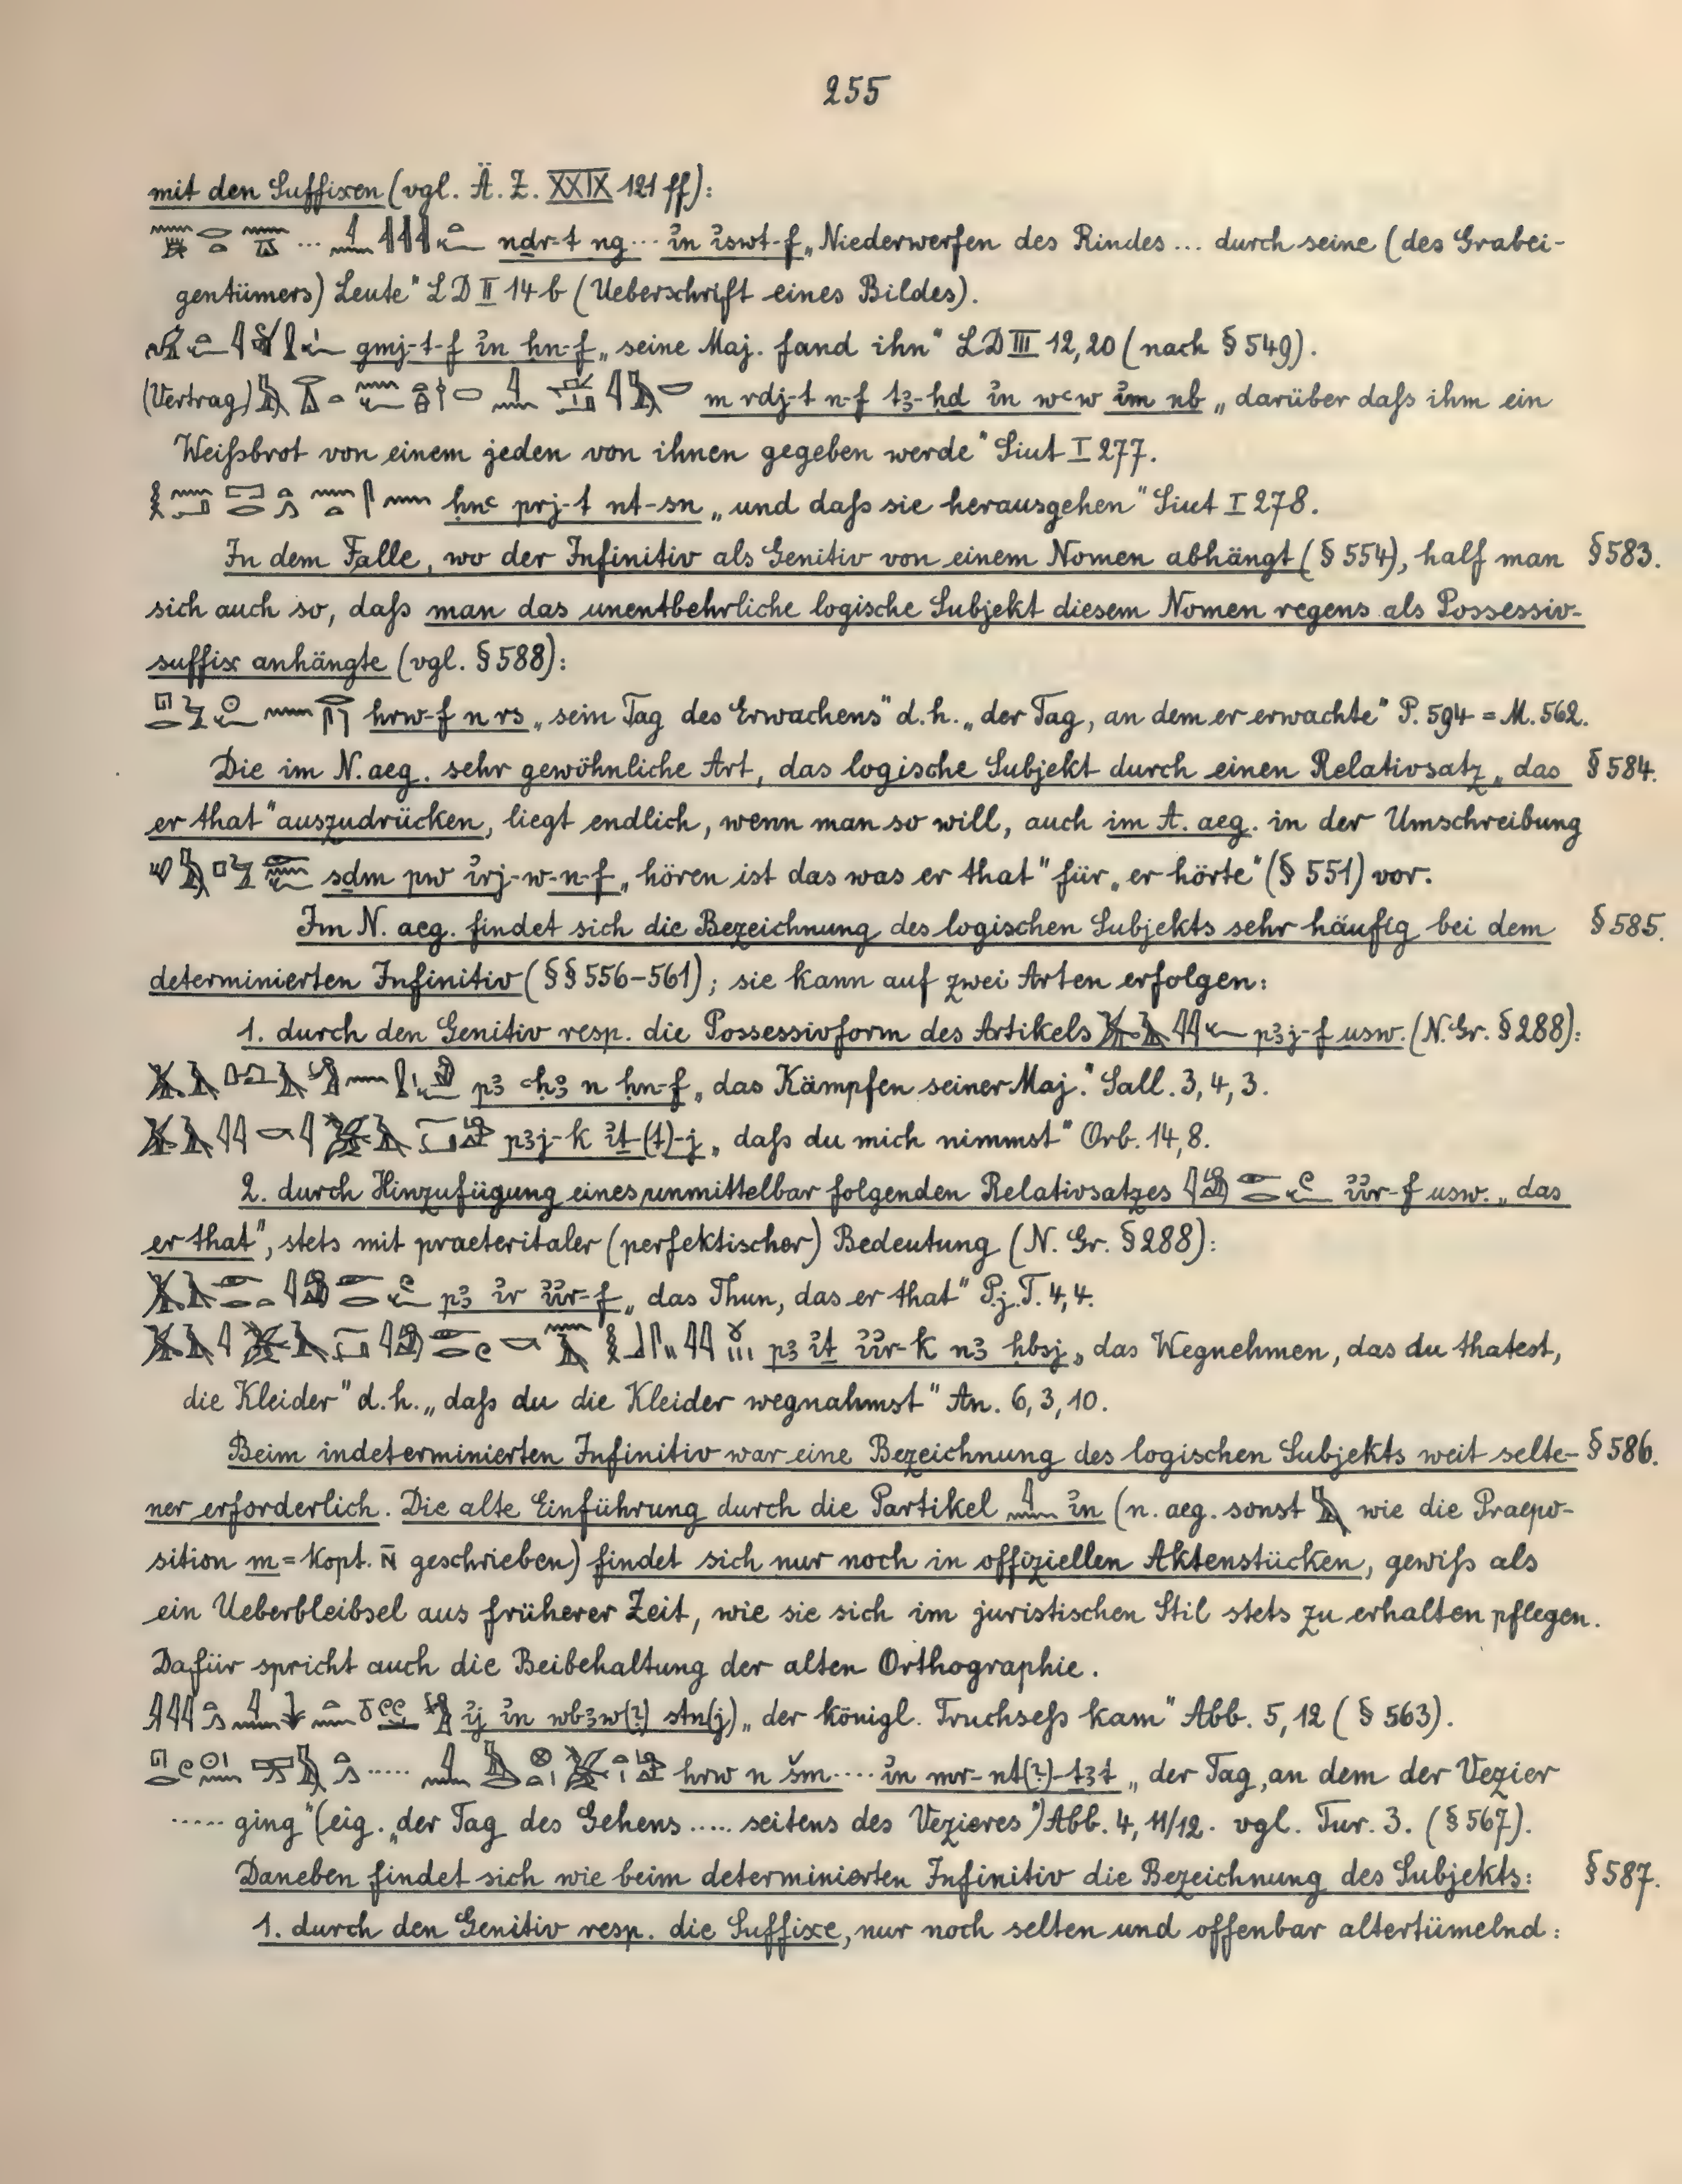 255
mit den Suffixen (vgl. Ä. Z. XXIX 121 ff):
ndr-t ng ... ỉn ỉswt-f „Niederwerfen des Rindes ... durch seine (des Grabei-
gentümers) Leute" LD II 14 b (Ueberschrift eines Bildes).
gmj-t-f ỉn ḥn-f „seine Maj. fand ihn" LD III 12,20 (nach § 549).
(Vertrag) m rdj-t n-f tꜣ-ḥd ỉn wꜥw ỉm nb „darüber daſs ihm ein
Weiſsbrot von einem jeden von ihnen gegeben werde" Siut I 277.
ḥnꜥ prj-t nt-sn „und daſs sie herausgehen" Siut I 278.
In dem Falle, wo der Infinitiv als Genitiv von einem Nomen abhängt (§ 554), half man § 583.
sich auch so, daſs man das unentbehrliche logische Subjekt diesem Nomen regens als Possessiv-
suffix anhängte (vgl. § 588):
hrw-f n rs „sein Tag des Erwachens" d.h. „der Tag, an dem er erwachte" P. 594 = M. 562.
Die im N. aeg. sehr gewöhnliche Art, das logische Subjekt durch einen Relativsatz „das § 584.
er that" auszudrücken, liegt endlich, wenn man so will, auch im A. aeg. in der Umschreibung
sḏm pw ỉrj-w-n-f „hören ist das was er that" für „er hörte" (§ 551) vor.
Im N. aeg. findet sich die Bezeichnung des logischen Subjekts sehr häufig bei dem § 585.
determinierten Infinitiv (§§ 556-561); sie kann auf zwei Arten erfolgen:
1. durch den Genitiv resp. die Possessivform des Artikels pꜣj-f usw. (N. Gr. § 288):
pꜣ ꜥḥꜣ n ḥn-f „das Kämpfen seiner Maj." Sall. 3, 4, 3.
pꜣj-k ỉṯ-(t)-j „daſs du mich nimmst" Orb. 14, 8.
2. durch Hinzufügung eines unmittelbar folgenden Relativsatzes ỉỉr-f usw. „das
er that", stets mit praeteritaler (perfektischer) Bedeutung (N. Gr. § 288):
pꜣ ỉr ỉỉr-f „das Thun, das er that" P. j. T. 4, 4.
pꜣ ỉṯ ỉỉr-k nꜣ ḥbsj „das Wegnehmen, das du thatest,
die Kleider" d. h. „daſs du die Kleider wegnahmst" An. 6, 3, 10.
Beim indeterminierten Infinitiv war eine Bezeichnung des logischen Subjekts weit selte- § 586.
ner erforderlich. Die alte Einführung durch die Partikel ỉn (n. aeg. sonst wie die Praepo-
sition m = Kopt. N̄ geschrieben) findet sich nur noch in offiziellen Aktenstücken, gewiſs als
ein Ueberbleibsel aus früherer Zeit, wie sie sich im juristischen Stil stets zu erhalten pflegen.
Dafür spricht auch die Beibehaltung der alten Orthographie.
ỉj ỉn wbꜣw(?) stn(j) „der königl. Truchseſs kam" Abb. 5, 12 (§ 563).
hrw n šm .... ỉn mr-nt(?)-tꜣt „der Tag, an dem der Vezier
..... ging" (eig. „der Tag des Gehens ..... seitens des Vezieres") Abb. 4, 11/12. vgl. Tur. 3. (§ 567).
Daneben findet sich wie beim determinierten Infinitiv die Bezeichnung des Subjekts: § 587.
1. durch den Genitiv resp. die Suffixe, nur noch selten und offenbar altertümelnd: